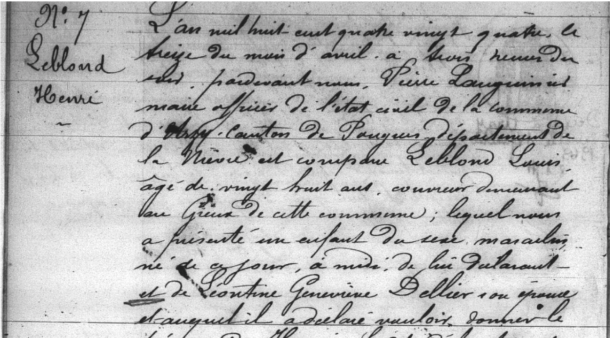 N° 7
Leblond
Henri
L'an mil huit cent quatre vingt quatre, le
treize du mois d'avril à trois heures du
soir, pardevant nous, Pierre
maire officier de l'état civil de la commune
d'Urzy canton de Pougues, département de
la Nièvre est comparu Leblond Louis
âgé de vingt huit ans, couvreur demeurant
au Greux de cette commune; lequel nous
a présenté un enfant du sexe masculin
né de ce jour, à midi, de lui déclarant
et de Léontine Geneviève Dellier son épouse
et auquel il a déclaré vouloir donner le